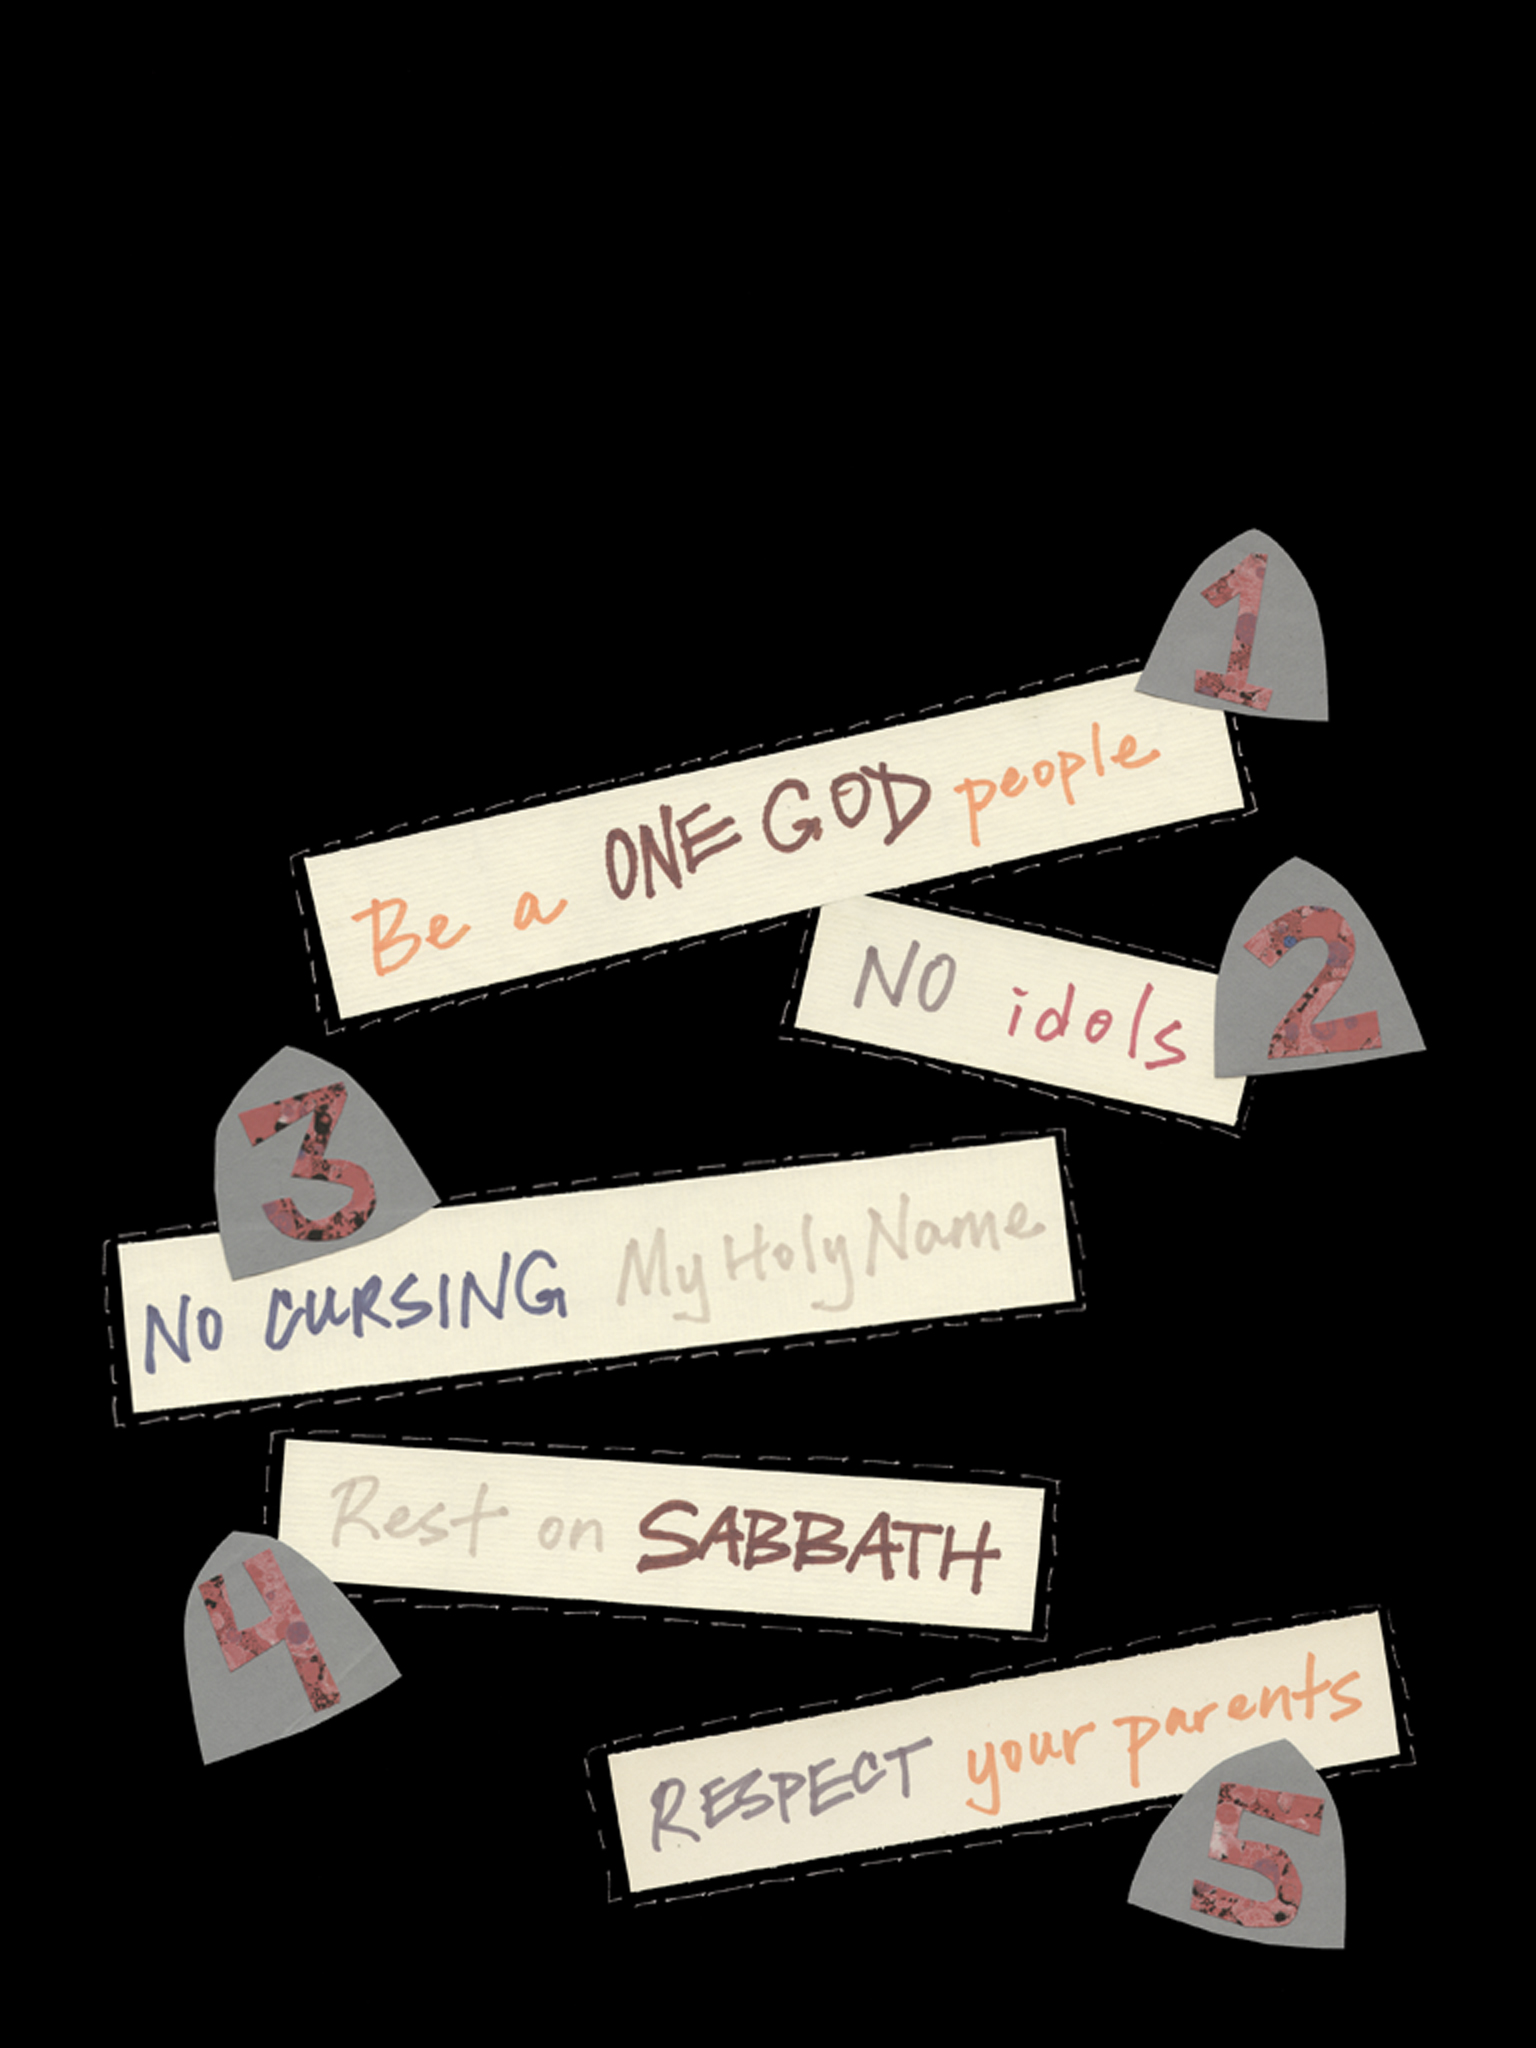 1
Be a ONE GOD people
2
NO idols
3
NO CURSING My Holy Name
4
Rest on SABBATH
5
RESPECT your parents